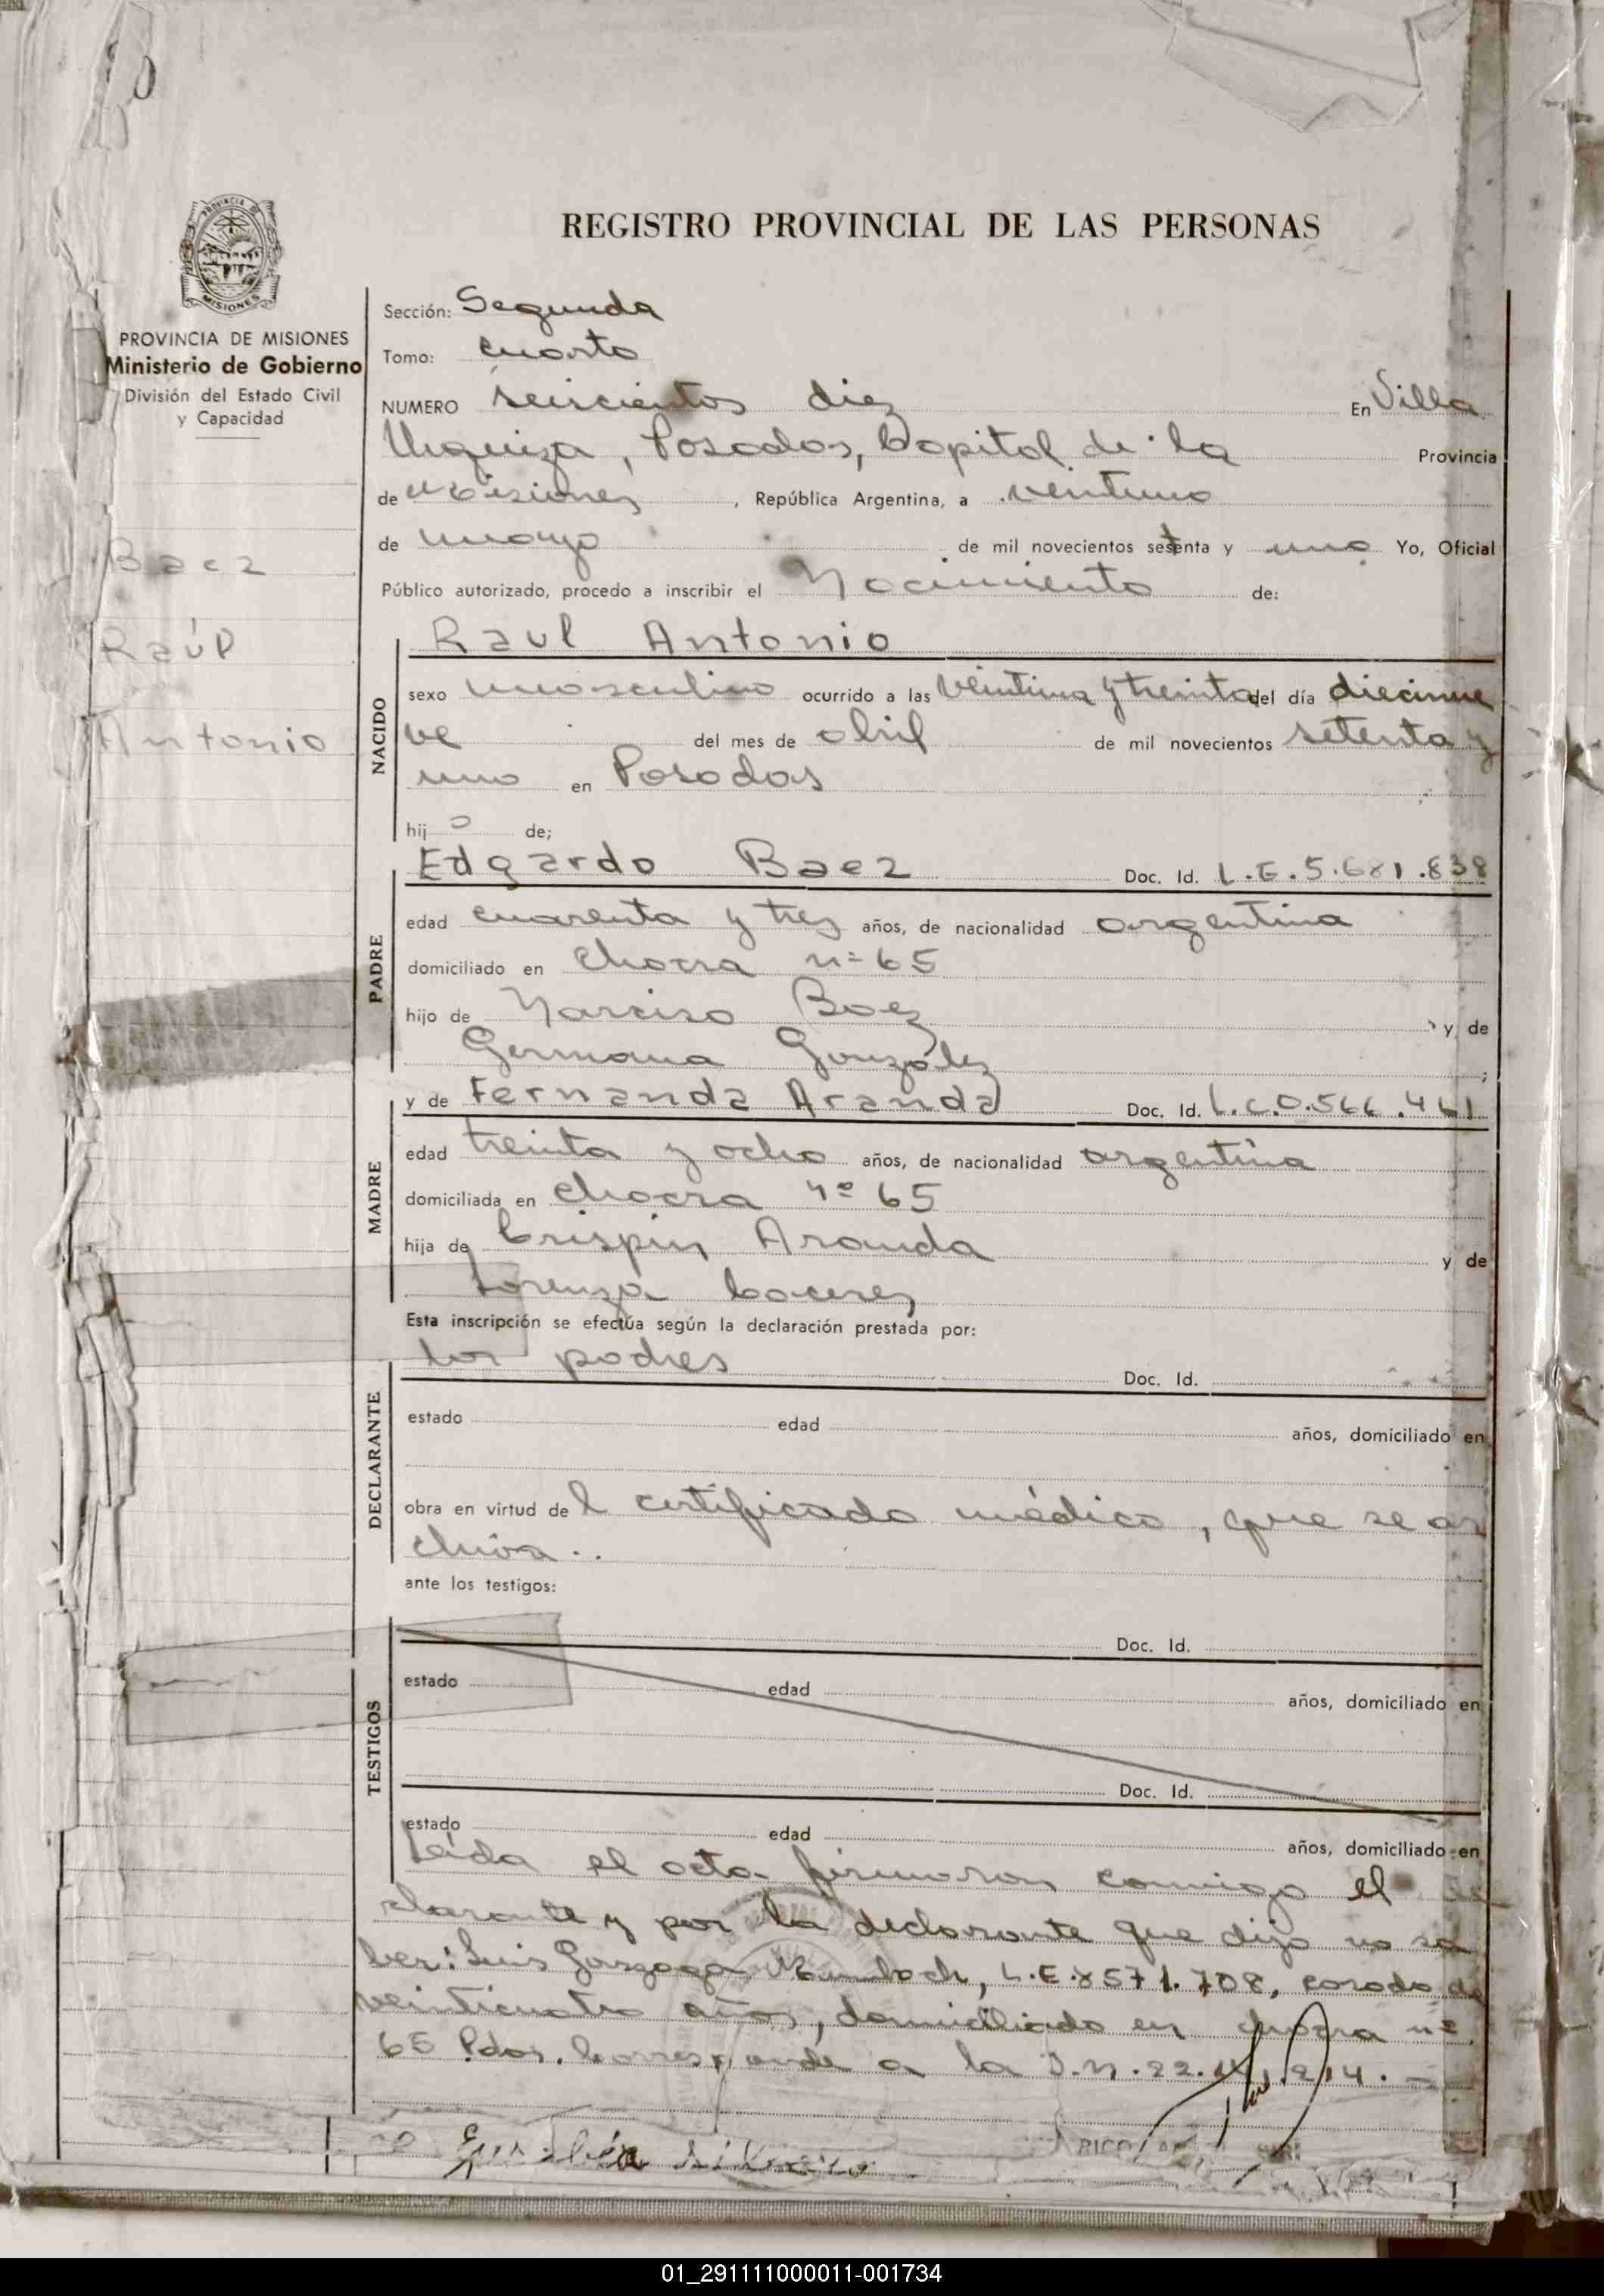 REGISTRO PROVINCIAL DE LAS PERSONAS
PROVINCIA DE
MISIONES
PROVINCIA DE MISIONES
Ministerio de Gobierno
División del Estado Civil
y Capacidad
Baez
Raúl
Antonio
Sección: Segunda
Tomo: cuarto
NUMERO seiscientos diez En Villa
Urquiza, Posadas, Capital de la Provincia
de Misiones, República Argentina, a ventiuno
de mayo de mil novecientos setenta y uno Yo, Oficial
Público autorizado, procedo a inscribir el Nacimiento de:
Raul Antonio
NACIDO
sexo masculino ocurrido a las veintiuna y treinta del día diecinue
ve del mes de abril de mil novecientos setenta y
uno en Posadas
hijo de;
Edgardo Baez Doc. Id. L.E.5.681.838
PADRE
edad cuarenta y tres años, de nacionalidad argentina
domiciliado en chacra nº 65
hijo de Narciso Baez y de
Germana González
y de Fernanda Aranda Doc. Id. L.C.0.566.461
MADRE
edad treinta y ocho años, de nacionalidad argentina
domiciliada en chacra nº 65
hija de Crispin Aranda y de
Lorenza Caceres
Esta inscripción se efectúa según la declaración prestada por:
los padres Doc. Id.
DECLARANTE
estado edad años, domiciliado en
obra en virtud del certificado médico, que se ar
chiva..
ante los testigos:
Doc. Id.
TESTIGOS
estado edad años, domiciliado en
Doc. Id.
estado edad años, domiciliado en
Leída el acta firmaron conmigo el de
clarante y por la declarante que dijo no sa
ber: Luis L.E.8571.708, casado de
veinticuatro años, domiciliado en chacra nº
65 Pdas. Corresponde a la D.N.22.
01_291111000011-001734